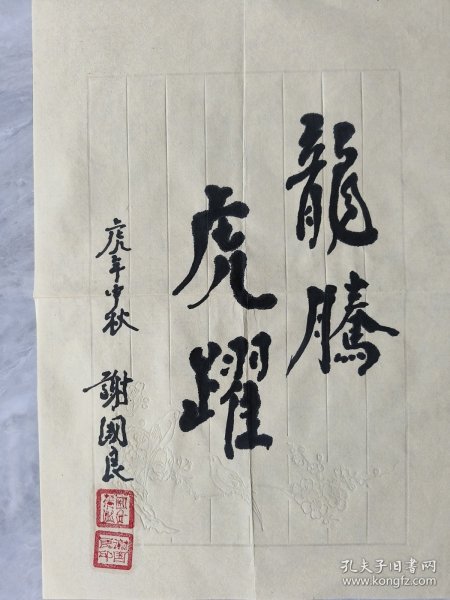 龍騰
虎躍
虎年中秋 謝國良
孔夫子旧书网
www.kongfz.com